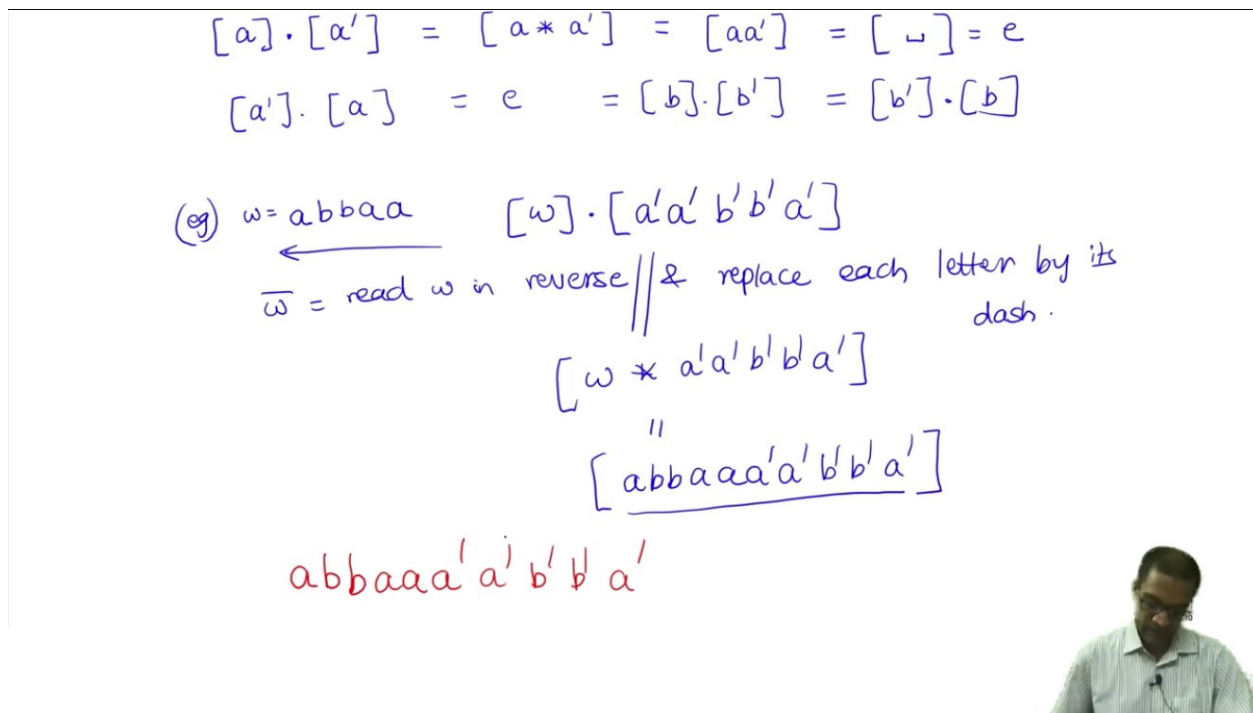 [a] · [a'] = [a * a'] = [aa'] = [ ␣ ] = e
[a'] · [a] = e = [b] · [b'] = [b'] · [b]
(eg) w = abbaa [w] · [a'a' b'b'a']
w̅ = read w in reverse // & replace each letter by its
dash.
[w * a'a'b'b'a']
=
[abbaaa'a'b'b'a']
abbaaa'a'b'b'a'